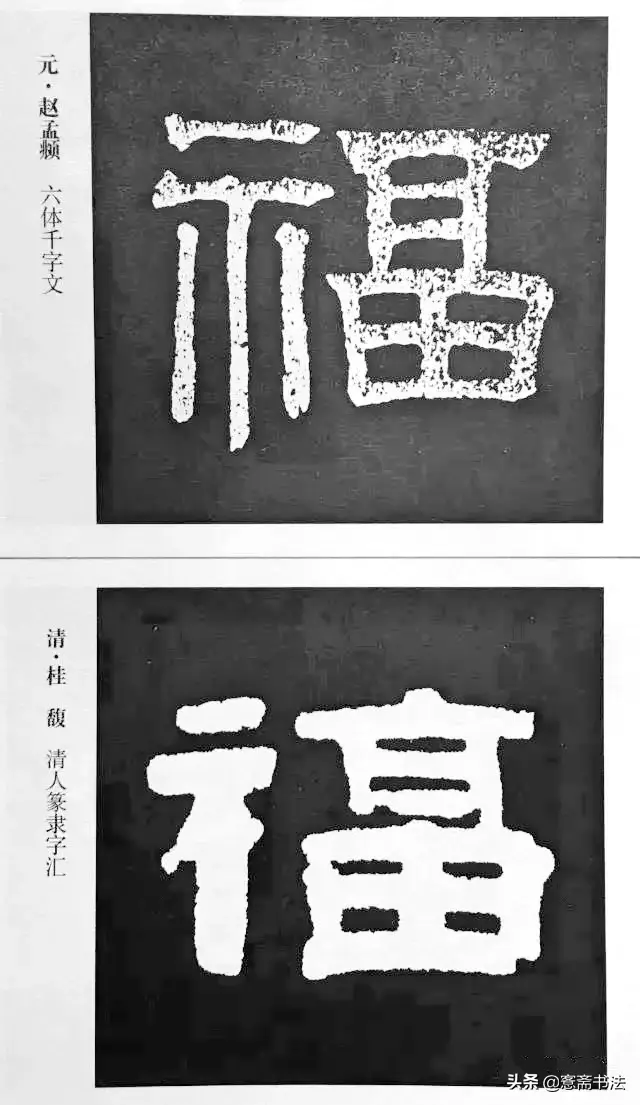 元·赵孟頫 六体千字文
福
清·桂馥 清人篆隶字汇
福
头条 @寋斋书法